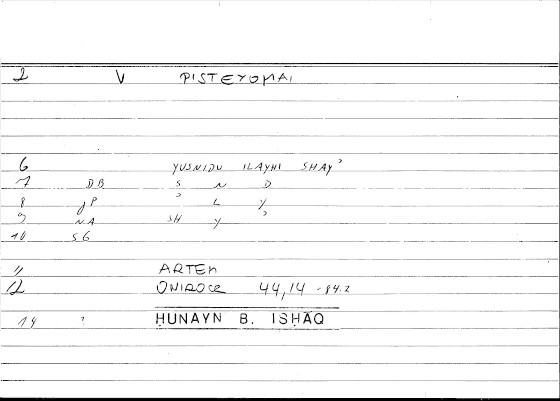 2 V PISTEYOMAI
6 YUSNIDU ILAYHI SHAY'
7 DB S N D
8 JP ' L Y
9 NA SH Y '
10 SG
11 ARTEM
12 ONIROCR 44,14 - 84.2
14 ? ḤUNAYN B. ISḤĀQ